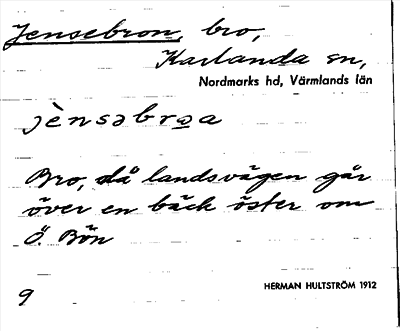 Jensebron, bro,
Karlanda sn,
Nordmarks hd, Värmlands län
jènsəbro̲a
Bro, då landsvägen går
över en bäck öster om
Ö. Bön
HERMAN HULTSTRÖM 1912
9